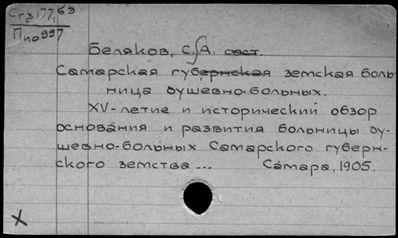 Стз 177,63
Ппо997
Беляков, С.А. сост.
Самарская губернская земская боль
ница душевно-больных.
XV-летие и исторический обзор
основания и развития больницы ду-
шевно-больных Самарского губерн-
ского земства ... Самара, 1905.
X